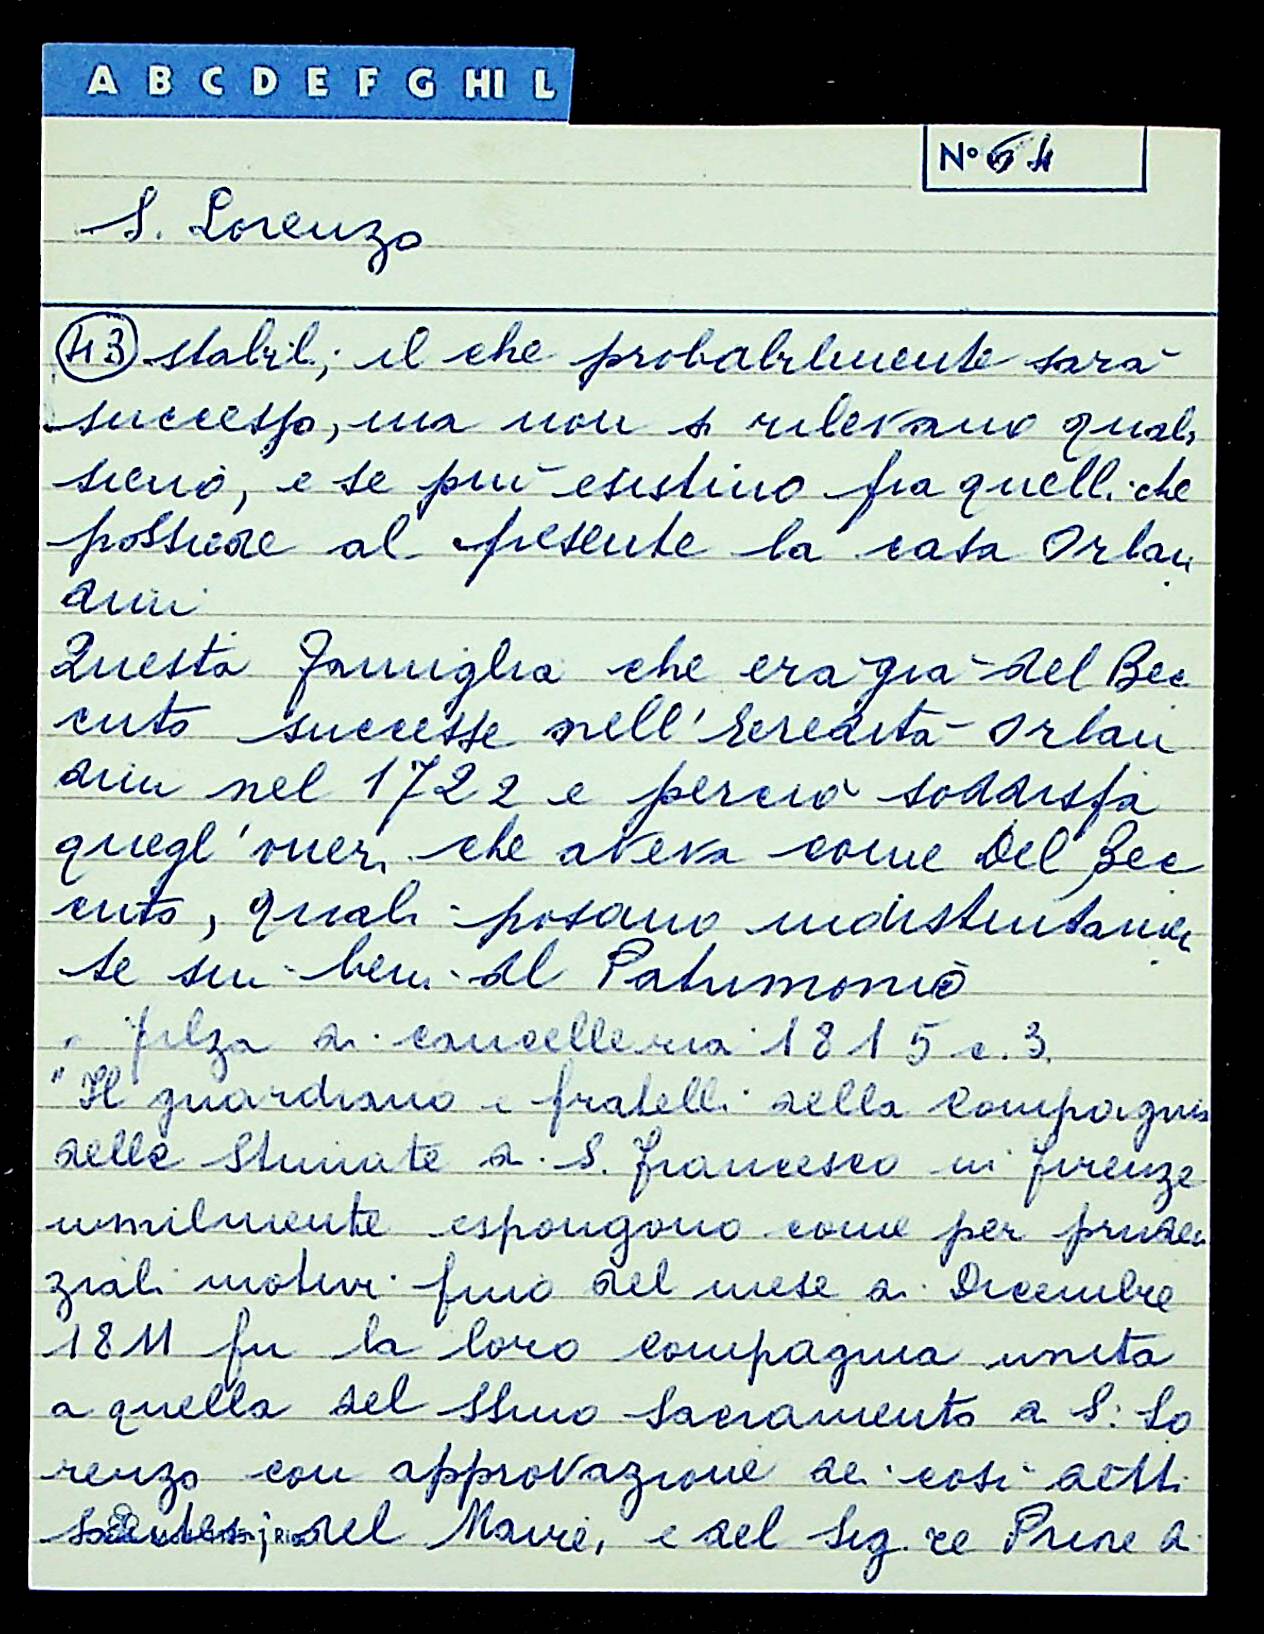 A B C D E F G HI L
N° 64
S. Lorenzo
43 stabili, il che probabilmente sarà
successo, ma non si rilevano quali
sieno, e se più esistino fra quelli che
possiede al presente la casa Orlan
dini
Questa famiglia che era già del Bec
cuto successe nell'Eredità Orlan
dini nel 1722 e perciò soddisfa
quegl'oneri che aveva come Del Bec
cuto, quali posano indistintamen
te sui beni del Patrimonio
" filza di cancelleria 1815 c. 3.
"Il guardiano e fratelli della Compagnia
delle Stimate di S. Francesco in firenze
umilmente espongono come per pruden
ziali motivi fino del mese di Dicembre
1811 fu la loro Compagnia unita
a quella del SSmo Sacramento di S. Lo
renzo con approvazione dei così detti
del Maire, e del Sig.re Priore di